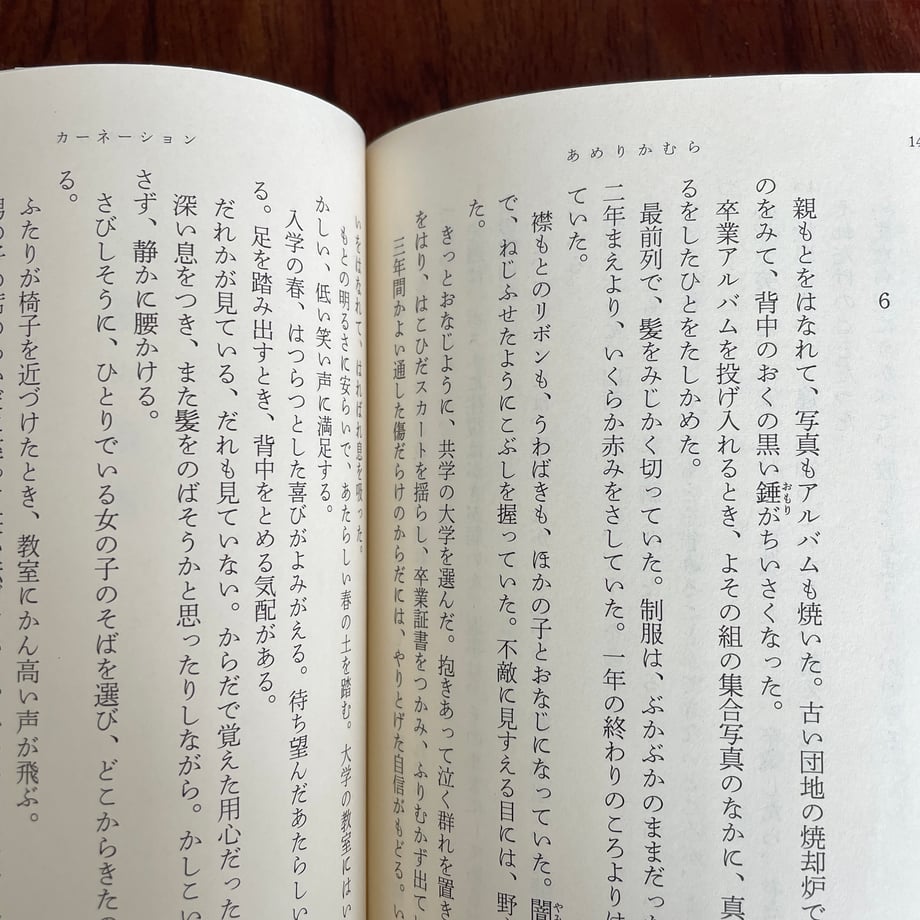 14
あめりかむら
6
親もとをはなれて、写真もアルバムも焼いた。古い団地の焼却炉で
のをみて、背中のおくの黒い錘がちいさくなった。
おもり
卒業アルバムを投げ入れるとき、よその組の集合写真のなかに、真
るをしたひとをたしかめた。
最前列で、髪をみじかく切っていた。制服は、ぶかぶかのままだっ
二年まえより、いくらか赤みをさしていた。一年の終わりのころよりは
ていた。
襟もとのリボンも、うわばきも、ほかの子とおなじになっていた。闇
で、ねじふせたようにこぶしを握っていた。不敵に見すえる目には、野
た。
きっとおなじように、共学の大学を選んだ。抱きあって泣く群れを置き
をはり、はこひだスカートを揺らし、卒業証書をつかみ、ふりむかず出て
三年間かよい通した傷だらけのからだには、やりとげた自信がもどる。い
カーネーション
いをはなれて、はればれ息を吸った。
もとの明るさに安らいで、あたらしい春の土を踏む。大学の教室にはい
かしい、低い笑い声に満足する。
入学の春、はつらつとした喜びがよみがえる。待ち望んだあたらしい
る。足を踏み出すとき、背中をとめる気配がある。
だれかが見ている、だれも見ていない。からだで覚えた用心だった
深い息をつき、また髪をのばそうかと思ったりしながら。かしこい
さず、静かに腰かける。
さびしそうに、ひとりでいる女の子のそばを選び、どこからきたの
る。
ふたりが椅子を近づけたとき、教室にかん高い声が飛ぶ。